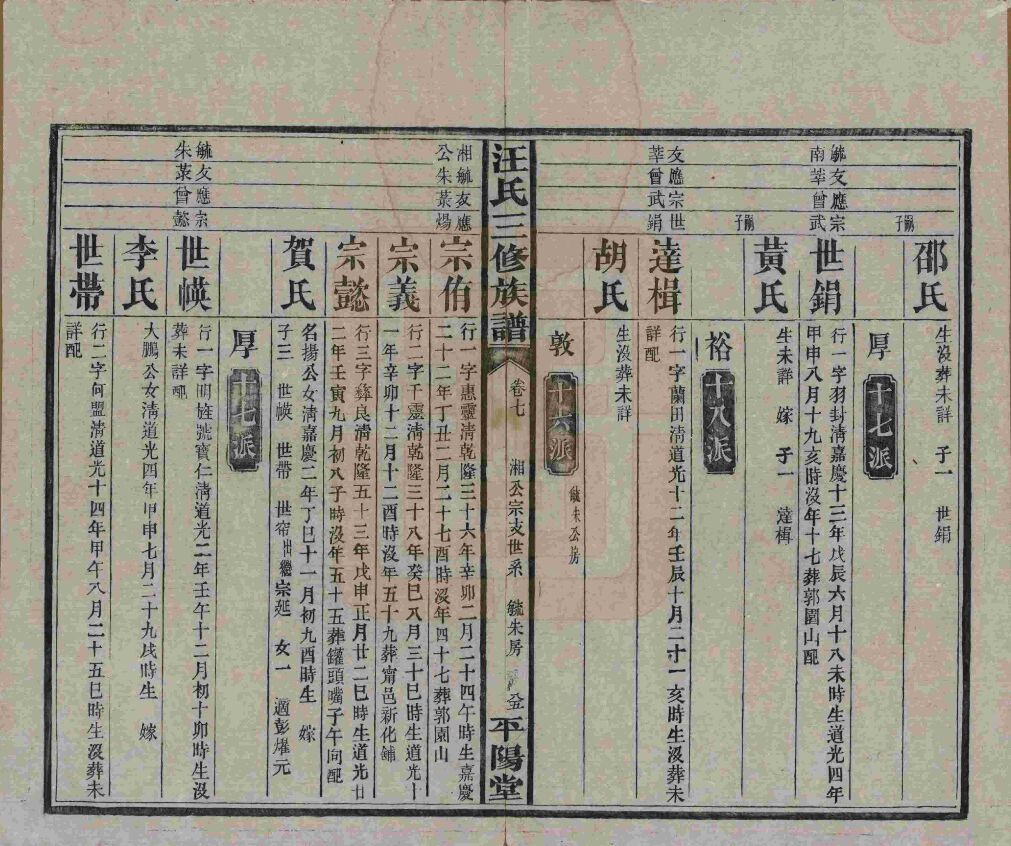 邵氏
生沒葬未詳　子一　世鋗
厚　十七派
毓友應宗
南莘曾武
世鋗
行一字羽封清嘉慶十三年戊辰六月十八未時生道光四年
甲申八月十九亥時沒年十七葬郭園山配
黃氏
生未詳　嫁　子一　達楫
裕　十八派
友應宗世
莘曾武鋗
達楫
行一字蘭田清道光十二年壬辰十月二十一亥時生沒葬未
詳配
胡氏
生沒葬未詳
敦　十六派　毓朱公房
汪氏三修族譜　卷七　湘公宗支世系　毓朱房　平陽堂
湘毓友應
公朱菉煬
宗侑
行一字惠靈清乾隆三十六年辛卯二月二十四午時生嘉慶
二十二年丁丑二月二十七酉時沒年四十七葬郭園山
宗義
行二字千靈清乾隆三十八年癸巳八月三十巳時生道光十
一年辛卯十二月十二酉時沒年五十九葬甯邑新化鋪
宗懿
行三字彝良清乾隆五十三年戊申正月廿二巳時生道光廿
二年壬寅九月初八子時沒年五十五葬鑵頭嘴子午向配
賀氏
名揚公女清嘉慶二年丁巳十一月初九酉時生　嫁
子三　世幙　世帶　世帘出繼宗延　女一　適彭燿元
厚　十七派
毓友應宗
朱菉曾懿
世幙
行一字明旌號寳仁清道光二年壬午十二月初十卯時生沒
葬未詳配
李氏
大鵬公女清道光四年甲申七月二十九戌時生　嫁
世帶
行二字何盟清道光十四年甲午八月二十五巳時生沒葬未
詳配